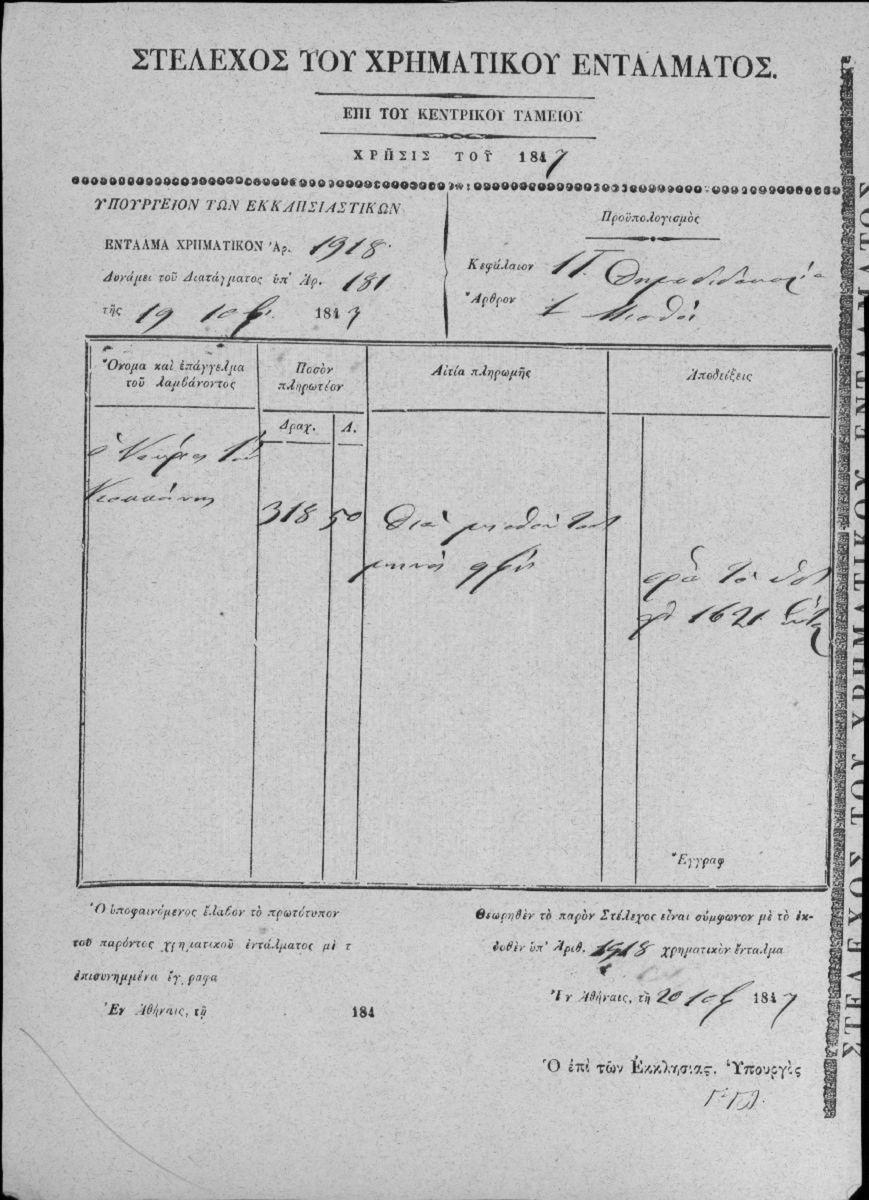 ΣΤΕΛΕΧΟΣ ΤΟΥ ΧΡΗΜΑΤΙΚΟΥ ΕΝΤΑΛΜΑΤΟΣ.
ΕΠΙ ΤΟΥ ΚΕΝΤΡΙΚΟΥ ΤΑΜΕΙΟΥ
ΧΡΗΣΙΣ ΤΟῦ 1847
ΥΠΟΥΡΓΕΙΟΝ ΤΩΝ ΕΚΚΛΗΣΙΑΣΤΙΚΩΝ
ΕΝΤΑΛΜΑ ΧΡΗΜΑΤΙΚΟΝ Ἀρ. 1918
Δυνάμει τοῦ Διατάγματος ὑπ' Ἀρ. 181
τῆς 19 10βρ. 1847
Προϋπολογισμὸς
Κεφάλαιον ΙΓ.
Ἄρθρον 1 Μισθοὶ
Ὄνομα καὶ ἐπάγγελμα
τοῦ λαμβάνοντος
Ποσὸν
πληρωτέον
Αἰτία πληρωμῆς
Ἀποδείξεις
Δραχ. Λ.
318 50
διὰ μισθὸν του
μηνὸς
1621
Ἐγγραφ
Ὁ ὑποφαινόμενος ἔλαβον τὸ πρωτότυπον
τοῦ παρόντος χρηματικοῦ ἐντάλματος μὲ τ
ἐπισυνημμένα ἔγγραφα
Ἐν Ἀθήναις, τῇ 184
Θεωρηθὲν τὸ παρὸν Στέλεχος εἶναι σύμφωνον μὲ τὸ ἐκ-
δοθὲν ὑπ' Ἀριθ. 1918 χρηματικὸν ἔνταλμα
Ἐν Ἀθήναις, τῇ 20 10βρ 1847
Ὁ ἐπὶ τῶν Ἐκκλησιας. Ὑπουργὸς
ΣΤΕΛΕΧΟΣ ΤΟΥ ΧΡΗΜΑΤΙΚΟΥ ΕΝΤΑΛΜΑΤΟΣ